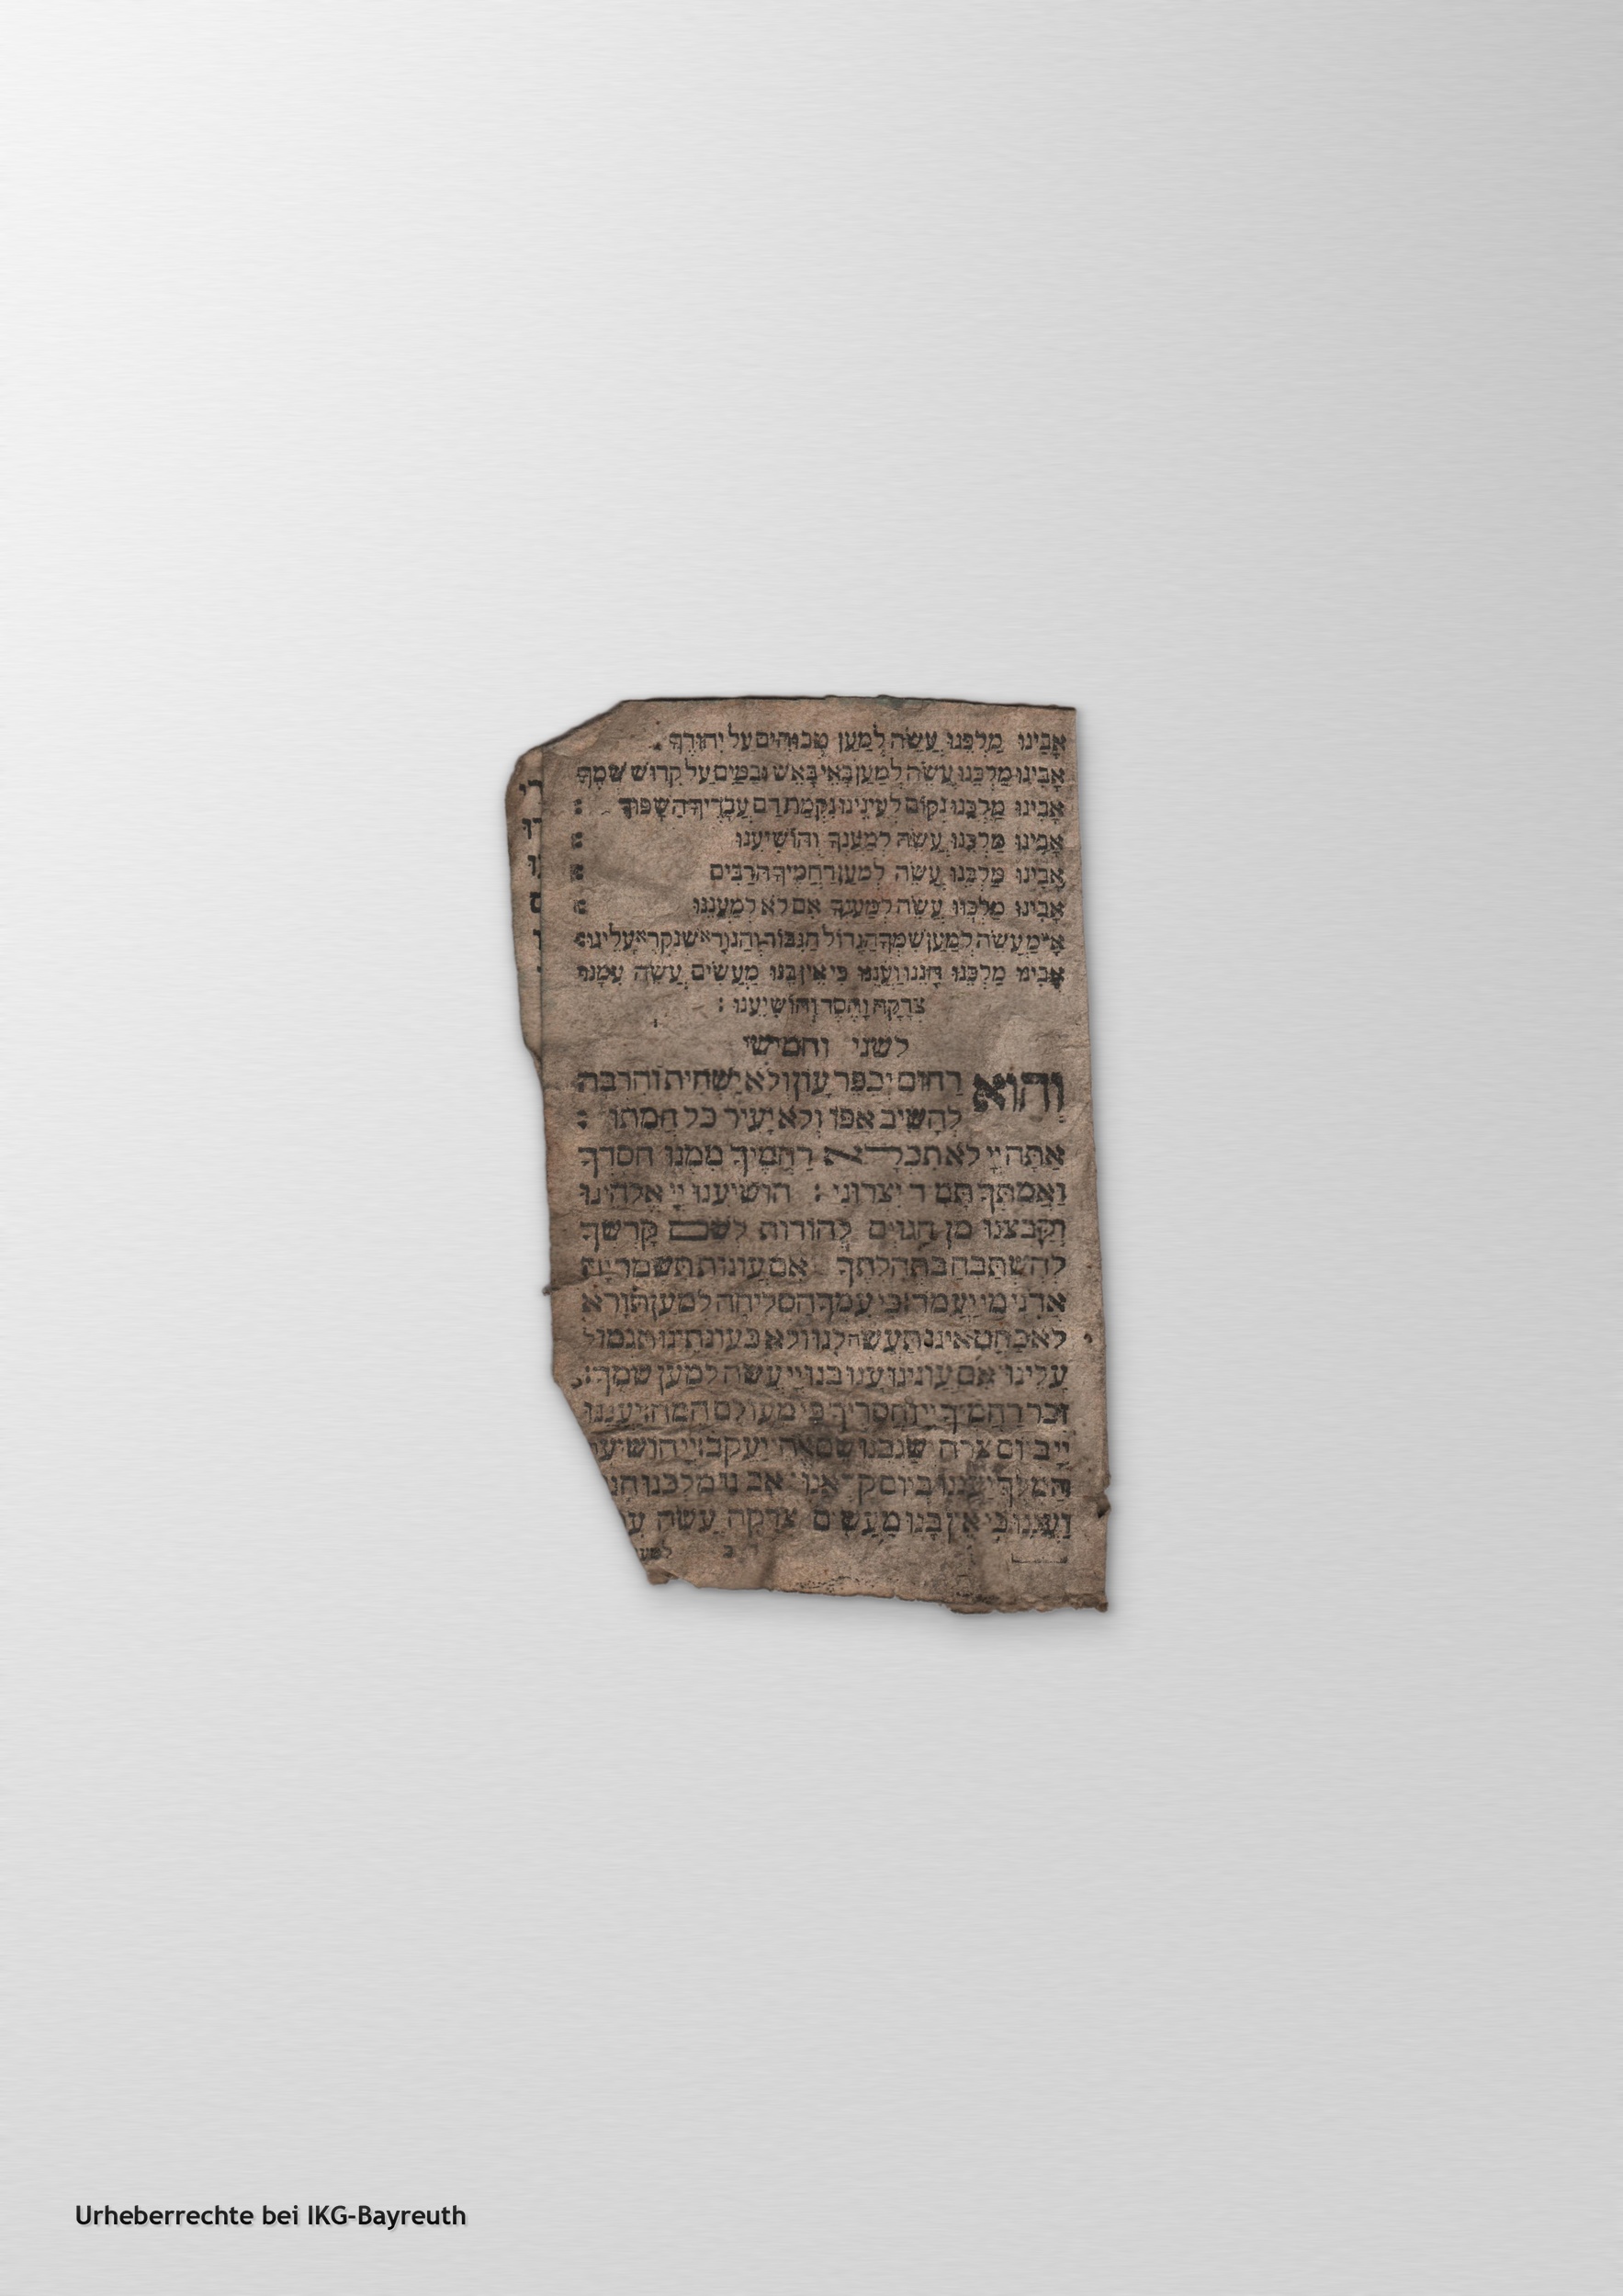 אָבִינוּ מַלְכֵּנוּ עֲשֵׂה לְמַעַן טְבוּחִים עַל יִחוּדֶךָ
אָבִינוּ מַלְכֵּנוּ עֲשֵׂה לְמַעַן בָּאֵי בָאֵשׁ וּבַמַּיִם עַל קִדּוּשׁ שְׁמֶךָ
אָבִינוּ מַלְכֵּנוּ נְקוֹם לְעֵינֵינוּ נִקְמַת דַּם עֲבָדֶיךָ הַשָּׁפוּךְ :
אָבִינוּ מַלְכֵּנוּ עֲשֵׂה לְמַעַנְךָ וְהוֹשִׁיעֵנוּ :
אָבִינוּ מַלְכֵּנוּ עֲשֵׂה לְמַעַן רַחֲמֶיךָ הָרַבִּים :
אָבִינוּ מַלְכֵּנוּ עֲשֵׂה לְמַעַנְךָ אִם לֹא לְמַעֲנֵנוּ :
א״מ עֲשֵׂה לְמַעַן שִׁמְךָ הַגָּדוֹל הַגִּבּוֹר וְהַנּוֹרָא שֶׁנִּקְרָא עָלֵינוּ :
אָבִינוּ מַלְכֵּנוּ חָנֵּנוּ וַעֲנֵנוּ כִּי אֵין בָּנוּ מַעֲשִׂים עֲשֵׂה עִמָּנוּ
צְדָקָה וָחֶסֶד וְהוֹשִׁיעֵנוּ :
לשני וחמישי
וְהוּא רַחוּם יְכַפֵּר עָוֹן וְלֹא יַשְׁחִית וְהִרְבָּה
לְהָשִׁיב אַפּוֹ וְלֹא יָעִיר כָּל חֲמָתוֹ :
אַתָּה יְיָ לֹא תִכְלָא רַחֲמֶיךָ מִמֶּנּוּ חַסְדְּךָ
וַאֲמִתְּךָ תָּמִיד יִצְּרוּנִי : הוֹשִׁיעֵנוּ יְיָ אֱלֹהֵינוּ
וְקַבְּצֵנוּ מִן הַגּוֹיִם לְהוֹדוֹת לְשֵׁם קָדְשֶׁךָ
לְהִשְׁתַּבֵּחַ בִּתְהִלָּתֶךָ אִם עֲוֹנוֹת תִּשְׁמָר יָהּ
אֲדֹנָי מִי יַעֲמֹד : כִּי עִמְּךָ הַסְּלִיחָה לְמַעַן תִּוָּרֵא
לֹא כַחֲטָאֵינוּ תַּעֲשֶׂה לָנוּ וְלֹא כַעֲוֹנֹתֵינוּ תִּגְמוֹל
עָלֵינוּ אִם עֲוֹנֵינוּ עָנוּ בָנוּ יְיָ עֲשֵׂה לְמַעַן שְׁמֶךָ :
זְכֹר רַחֲמֶיךָ יְיָ וַחֲסָדֶיךָ כִּי מֵעוֹלָם הֵמָּה : יַעֲנֵנוּ
יְיָ בְּיוֹם צָרָה יְשַׂגְּבֵנוּ שֵׁם יַעֲקֹב : יְיָ הוֹשִׁיעָה
הַמֶּלֶךְ יַעֲנֵנוּ בְיוֹם אָבִינוּ מַלְכֵּנוּ
וַעֲנֵנוּ כִּי אֵין בָּנוּ מַעֲשִׂים צְדָקָה עֲשֵׂה
Urheberrechte bei IKG-Bayreuth